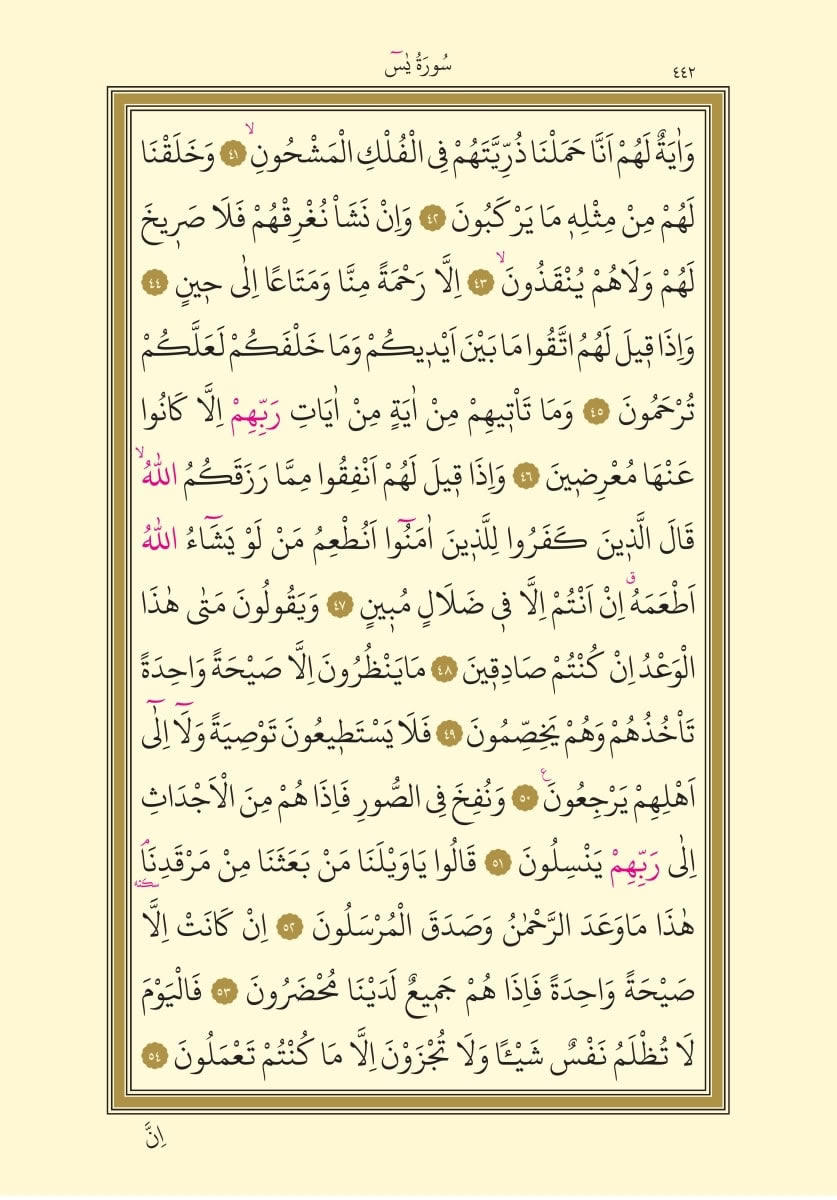 ٤٤٢
سُورَةُ يٰسٓ
وَاٰيَةٌ لَهُمْ اَنَّا حَمَلْنَا ذُرِّيَّتَهُمْ فِى الْفُلْكِ الْمَشْحُونِۙ ٤١ وَخَلَقْنَا
لَهُمْ مِنْ مِثْلِهٖ مَا يَرْكَبُونَ ٤٢ وَاِنْ نَشَأْ نُغْرِقْهُمْ فَلَا صَرٖيخَ
لَهُمْ وَلَاهُمْ يُنْقَذُونَۙ ٤٣ اِلَّا رَحْمَةً مِنَّا وَمَتَاعًا اِلٰى حٖينٍ ٤٤
وَاِذَا قٖيلَ لَهُمُ اتَّقُوا مَا بَيْنَ اَيْدٖيكُمْ وَمَا خَلْفَكُمْ لَعَلَّكُمْ
تُرْحَمُونَ ٤٥ وَمَا تَأْتٖيهِمْ مِنْ اٰيَةٍ مِنْ اٰيَاتِ رَبِّهِمْ اِلَّا كَانُوا
عَنْهَا مُعْرِضٖينَ ٤٦ وَاِذَا قٖيلَ لَهُمْ اَنْفِقُوا مِمَّا رَزَقَكُمُ اللّٰهُۙ
قَالَ الَّذٖينَ كَفَرُوا لِلَّذٖينَ اٰمَنُٓوا اَنُطْعِمُ مَنْ لَوْ يَشَٓاءُ اللّٰهُ
اَطْعَمَهُۗ اِنْ اَنْتُمْ اِلَّا فٖى ضَلَالٍ مُبٖينٍ ٤٧ وَيَقُولُونَ مَتٰى هٰذَا
الْوَعْدُ اِنْ كُنْتُمْ صَادِقٖينَ ٤٨ مَا يَنْظُرُونَ اِلَّا صَيْحَةً وَاحِدَةً
تَأْخُذُهُمْ وَهُمْ يَخِصِّمُونَ ٤٩ فَلَا يَسْتَطٖيعُونَ تَوْصِيَةً وَلَٓا اِلٰٓى
اَهْلِهِمْ يَرْجِعُونَ ع ٥٠ وَنُفِخَ فِى الصُّورِ فَاِذَا هُمْ مِنَ الْاَجْدَاثِ
اِلٰى رَبِّهِمْ يَنْسِلُونَ ٥١ قَالُوا يَاوَيْلَنَا مَنْ بَعَثَنَا مِنْ مَرْقَدِنَاۢ سكته
هٰذَا مَاوَعَدَ الرَّحْمٰنُ وَصَدَقَ الْمُرْسَلُونَ ٥٢ اِنْ كَانَتْ اِلَّا
صَيْحَةً وَاحِدَةً فَاِذَا هُمْ جَمٖيعٌ لَدَيْنَا مُحْضَرُونَ ٥٣ فَالْيَوْمَ
لَا تُظْلَمُ نَفْسٌ شَيْـًٔا وَلَا تُجْزَوْنَ اِلَّا مَا كُنْتُمْ تَعْمَلُونَ ٥٤
اِنَّ